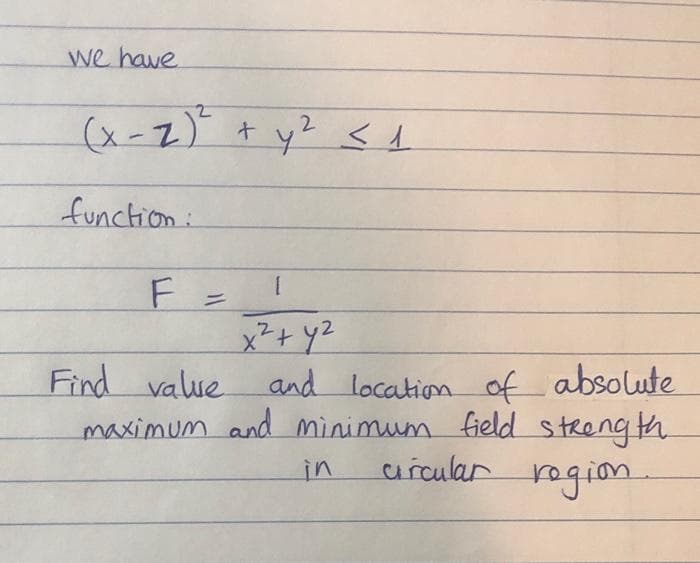 we have
(x - 2)² + y² ≤ 1
function:
F = 1
x² + y²
Find value and location of absolute
maximum and minimum field strength
in circular region.